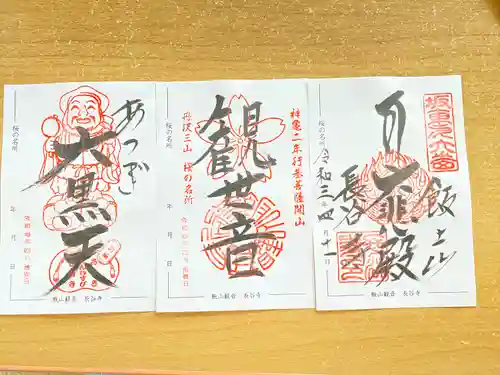 坂東第六番
飯上山
大悲殿
長谷寺
令和三年四月十一日
飯山観音 長谷寺
神亀二年行基菩薩開山
観世音
丹沢三山 桜の名所
桜の名所
年 月 日
飯山観音 長谷寺
あつぎ
大黒天
桜の名所
年 月 日
飯山観音 長谷寺